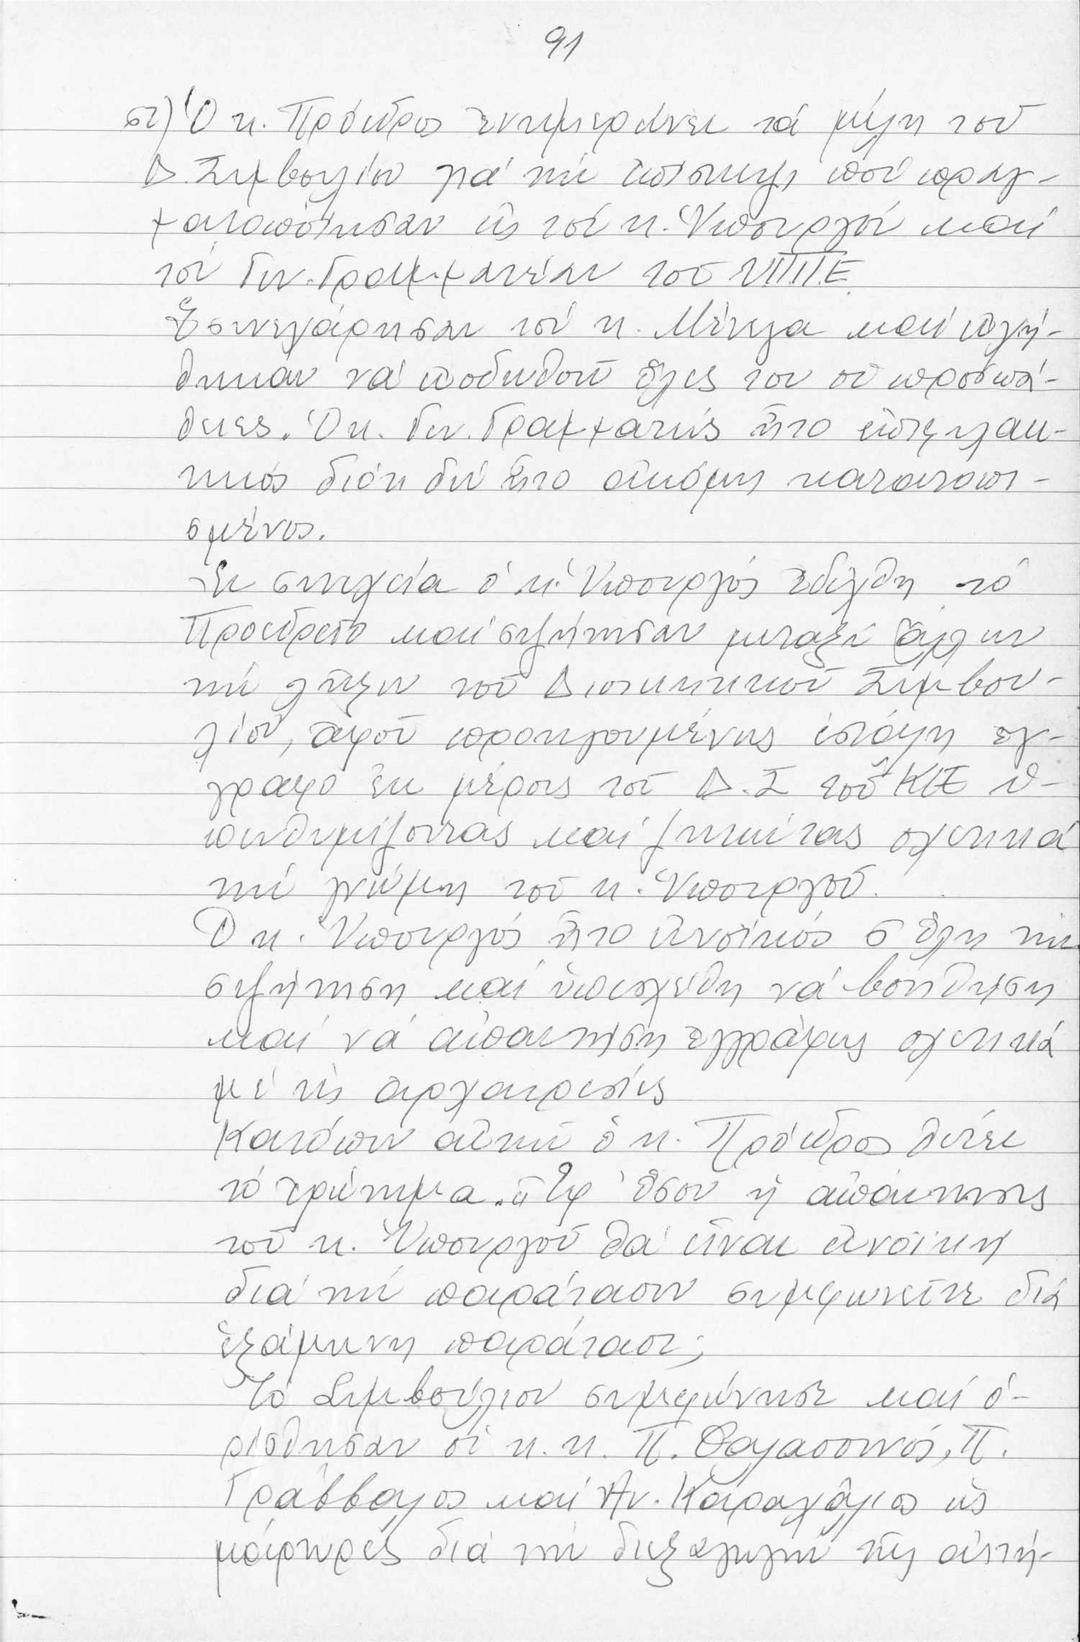 91
στ) Ὁ κ. Πρόεδρος ἐνημερώνει τά μέλη τοῦ
Δ. Συμβουλίου γιά τήν ἐπίσκεψι πού πραγ-
ματοποίησαν εἰς τόν κ. Ὑπουργόν καί
τόν Γεν. Γραμματέαν τοῦ ΥΠΠΕ.
Ἐσυνεχάρησαν τόν κ. καί εὐχή-
θηκαν νά εὐοδωθοῦν ὅλες του οἱ προσπά-
θειες. Ὁ κ. Γεν. Γραμματεύς ἦτο ἐπιφυλακ-
τικός διότι δέν ἦτο ἀκόμη κατατοπι-
σμένος.
Ἐν συνεχεία ὁ κ. Ὑπουργός ἐδέχθη τό
Προεδρεῖο καί συζήτησαν μεταξύ ἄλλων
τήν λῆξιν τοῦ Διοικητικοῦ Συμβου-
λίου, ἀφοῦ προηγουμένως ἐστάλη ἔγ-
γραφο ἐκ μέρους τοῦ Δ.Σ τοῦ ΚΙΕ ὑ-
πενθυμίζοντας καί ζητώντας σχετικά
τήν γνώμη τοῦ κ. Ὑπουργοῦ.
Ὁ κ. Ὑπουργός ἦτο εὐνοϊκός σ' ὅλη τήν
συζήτηση καί ὑπεσχέθη νά βοηθήση
καί νά ἀπαντήση ἐγγράφως σχετικά
μέ τίς ἀρχαιρεσίες
Κατόπιν αὐτῶν ὁ κ. Πρόεδρος θέτει
τό ἐρώτημα. "Ἐφ' ὅσον ἡ ἀπάντησις
τοῦ κ. Ὑπουργοῦ θά εἶναι εὐνοϊκή
διά τήν παράτασιν συμφωνεῖτε διά
ἑξάμηνη παράταση;
Τό Συμβούλιον συμφώνησε καί ὁ-
ρίσθησαν οἱ κ.κ. Π. Θαλασσινός, Π.
Γράββαλος καί Αν. Καραχάλιος ὡς
μάρτυρες διά τήν διεξαγωγήν τῆς αἰτή-